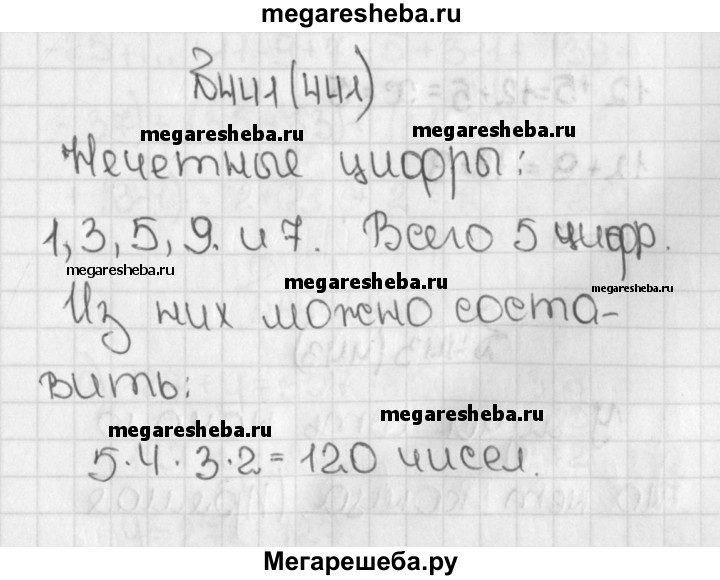 megaresheba.ru
441 (441)
megaresheba.ru megaresheba.ru
Нечетные цифры:
1, 3, 5, 9. и 7. Всего 5 цифр.
megaresheba.ru megaresheba.ru megaresheba.ru
Из них можно соста-
вить:
megaresheba.ru megaresheba.ru
5·4·3·2=120 чисел.
Мегарешеба.ру